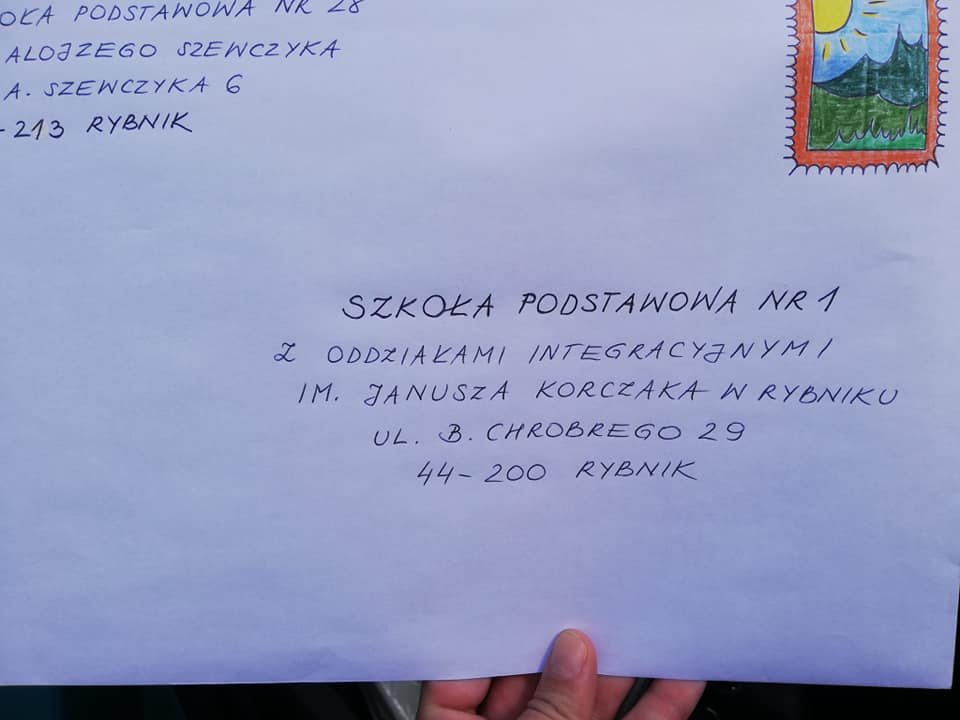 PODSTAWOWA NR 28
ALOJZEGO SZEWCZYKA
A. SZEWCZYKA 6
-213 RYBNIK
SZKOŁA PODSTAWOWA NR 1
Z ODDZIAŁAMI INTEGRACYJNYMI
IM. JANUSZA KORCZAKA W RYBNIKU
UL. B. CHROBREGO 29
44-200 RYBNIK